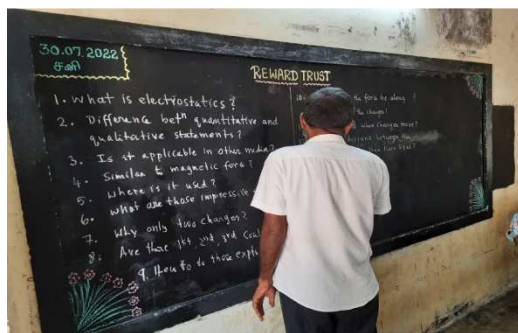 30.07.2022
சனி
REWARD TRUST
1. What is electrostatics?
2. Difference betn quantitative and
qualitative statements?
3. Is it applicable in other media?
4. Similar to magnetic force?
5. Where is it used?
6. What are those impressive
7. Why only two charges?
8. Are there 1st, 2nd, 3rd
9. How to do those
10.
the force be along
the charges?
when charges move?
distance between the